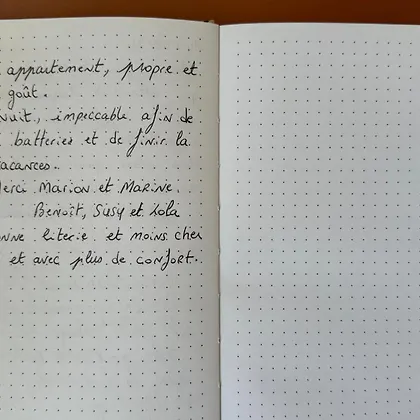 appartement, propre et
goût.
nuit, impeccable afin de
batteries et de finir la
vacances.
Merci Marion et Marine.
Benoît, Susy et Lola
onne literie et moins cher
et avec plus de confort.